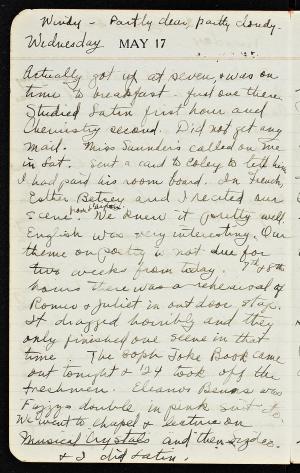 Windy - Partly clear, partly cloudy.
Wednesday MAY 17
Actually got up at seven & was on
time to breakfast - just one there.
Studied Latin first hour and
Chemistry second. Did not get any
mail. Miss Saunders called on me
in Lat. Sent a card to Coley to tell him
I had paid his room board. In French,
Esther Betsey and I recited our
scene. We knew it pretty well.
English was very interesting. Our
theme on poetry is not due for
two weeks from today. 7th & 8th
hours there was a rehearsal of
Romeo & Juliet in outdoor stage.
It dragged horribly and they
only finished one scene in that
time. The Soph Joke Book came
out tonight & '24 took off the
freshmen. Eleanor was
Fuzzy's double in pink suit &c.
We went to chapel & lecture on
Musical Crystals and then
& I did Latin.